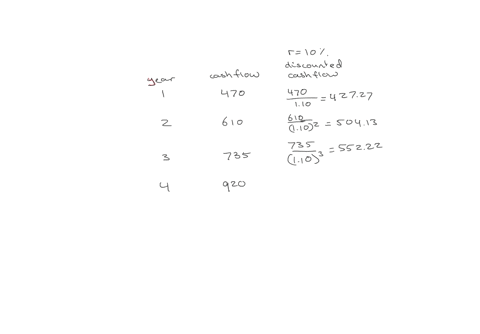 r = 10%.
year cashflow discounted cashflow
1 470 470/1.10 = 427.27
2 610 610/(1.10)2 = 504.13
3 735 735/(1.10)3 = 552.22
4 920